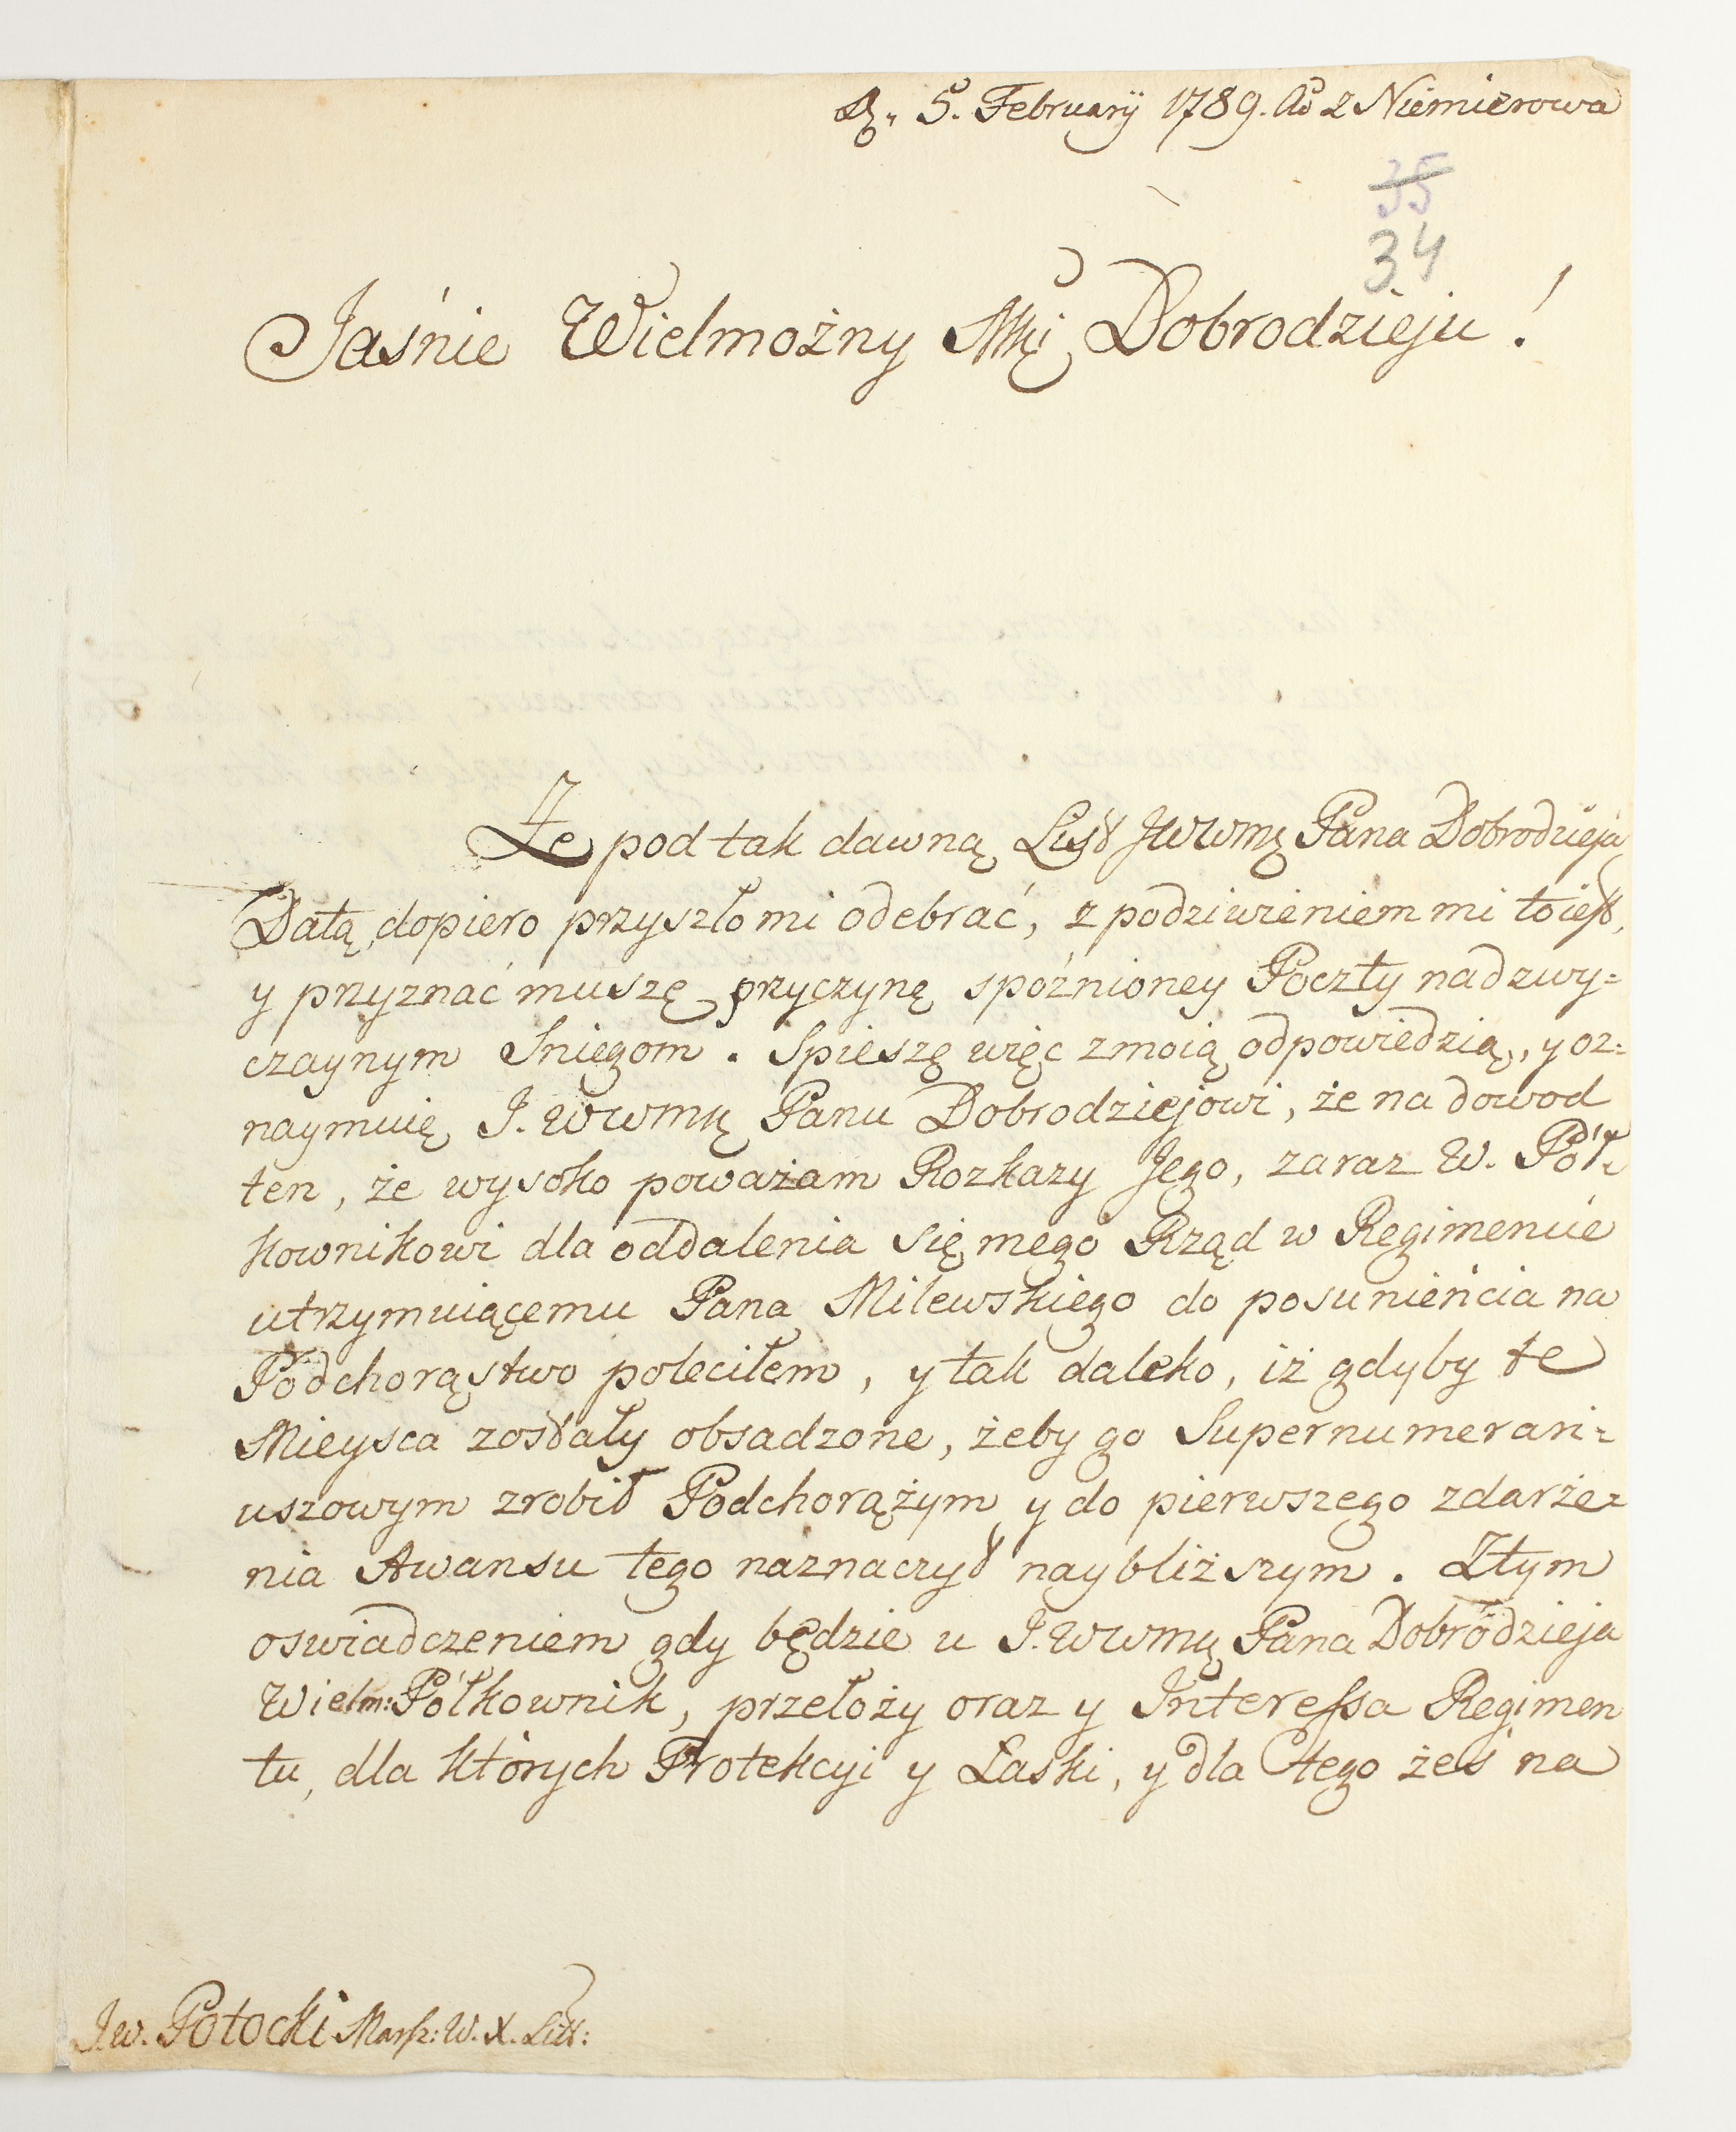 D. 5. February 1789. Ao z Niemierowa
35
34
Jaśnie Wielmożny Mći Dobrodzieju!
Że pod tak dawną List JWWMę Pana Dobrodzieja
Datą dopiero przyszło mi odebrać, z podziwieniem mi to iest,
y przyznać muszę przyczynę spoźnioney Poczty nadzwy=
czaynym Sniegom. Spieszę więc z moią odpowiedzią, y oz=
naymuię J. WWMę Panu Dobrodziejowi, że na dowod
ten, że wysoko poważam Rozkazy Jego, zaraz W. Pół=
kownikowi dla oddalenia się mego Rząd w Regimencie
utrzymuiącemu Pana Milewskiego do posunieńcia na
Podchorąstwo poleciłem, y tak daleko, iż gdyby te
Mieysca zostały obsadzone, żeby go Supernumerari=
uszowym zrobił Podchorążym y do pierwszego zdarże=
nia Awansu tego naznaczył naybliższym. Z tym
oswiadczeniem gdy będzie u J. WWMę Pana Dobrodzieja
Wielm: Półkownik, przełoży oraz y Interessa Regimen
tu, dla których Protekcyi y Łaski, y dla tego żeś na
J.W. Potocki Marsz: W. X. Litt: